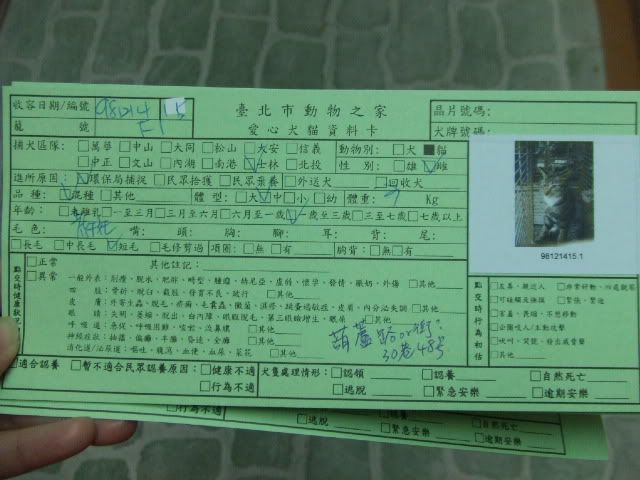 收容日期/編號 981214 15 臺北市動物之家 晶片號碼:
籠 號 E1 愛心犬貓資料卡 犬牌號碼:
捕犬區隊: □萬華 □中山 □大同 □松山 □大安 □信義 動物別: □犬 ■貓
□中正 □文山 □內湖 □南港 ☑士林 □北投 性 別: □雄 ☑雌
進所原因: ☑環保局捕捉 □民眾拾獲 □民眾棄養 □外送犬 □回收犬
品 種: ☑混種 □其他 體 型: □大 ☑中 □小 □幼 體重: Kg
年齡: □未離乳 □一至三月 □三至六月 □六月至一歲 ☑一歲至三歲 □三至七歲 □七歲以上
毛 色: 嘴: 頭: 胸: 腳: 耳: 背: 尾:
□長毛 □中長毛 ☑短毛 □毛修剪過 項圈: □無 □有 胸背: □無 □有
98121415.1
點交時健康狀況 □正常 其他註記:
□異常
一般外表: 削瘦、脫水、肥胖、畸型、腫瘤、疝尼亞、虛弱、懷孕、發情、脹奶、外傷 □其他
四 肢: 骨折、脫臼、截肢、發育不良、跛行 □其他
皮 膚: 外寄生蟲、脫毛、疥癬、毛囊蟲、黴菌、濕疹、跳蚤過敏症、皮屑、內分泌失調 □其他
眼 睛: 失明、萎縮、脫出、白內障、眼瞼脫毛、第三眼瞼增生、眼屎 □其他
呼吸道: 急促、呼吸困難、咳嗽、流鼻膿 □其他
神經症狀: 抽搐、偏癱、半癱、昏迷、全癱 □其他
消化道/泌尿道: 嘔吐、腹瀉、血便、血尿、尿花 □其他
葫蘆路 30巷48號
點交時行為初估
□友善、親近人 □非常好動、四處觀察
□可碰觸及撫摸 □緊張、緊迫
□害羞、畏縮、不想移動
□企圖咬人/主動攻擊
□吠叫、哭號、發出威脅聲
□適合認養 □暫不適合民眾認養原因: □健康不適 犬隻處理情形: □認領 □認養 □自然死亡
□行為不適 □逃脫 □緊急安樂 □逾期安樂
□行為不適 □逃脫 □緊急安樂 □自然死亡
□逾期安樂